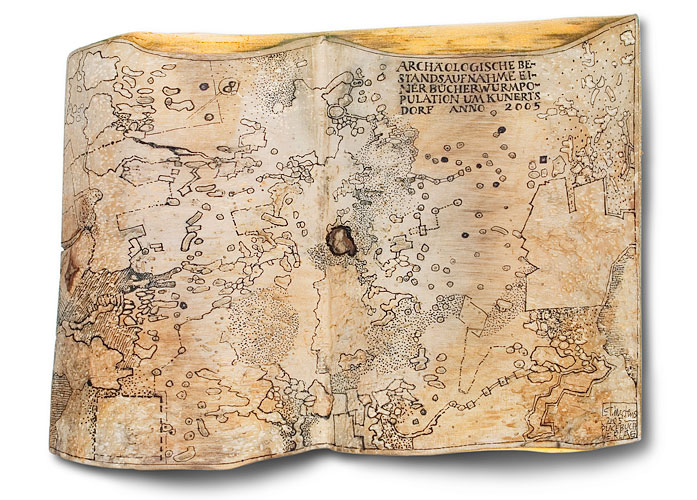 ARCHÄOLOGISCHE BE-
STANDSAUFNAHME EI-
NER BÜCHERWURMPO-
PULATION UM KUNERTS
DORF ANNO 2005